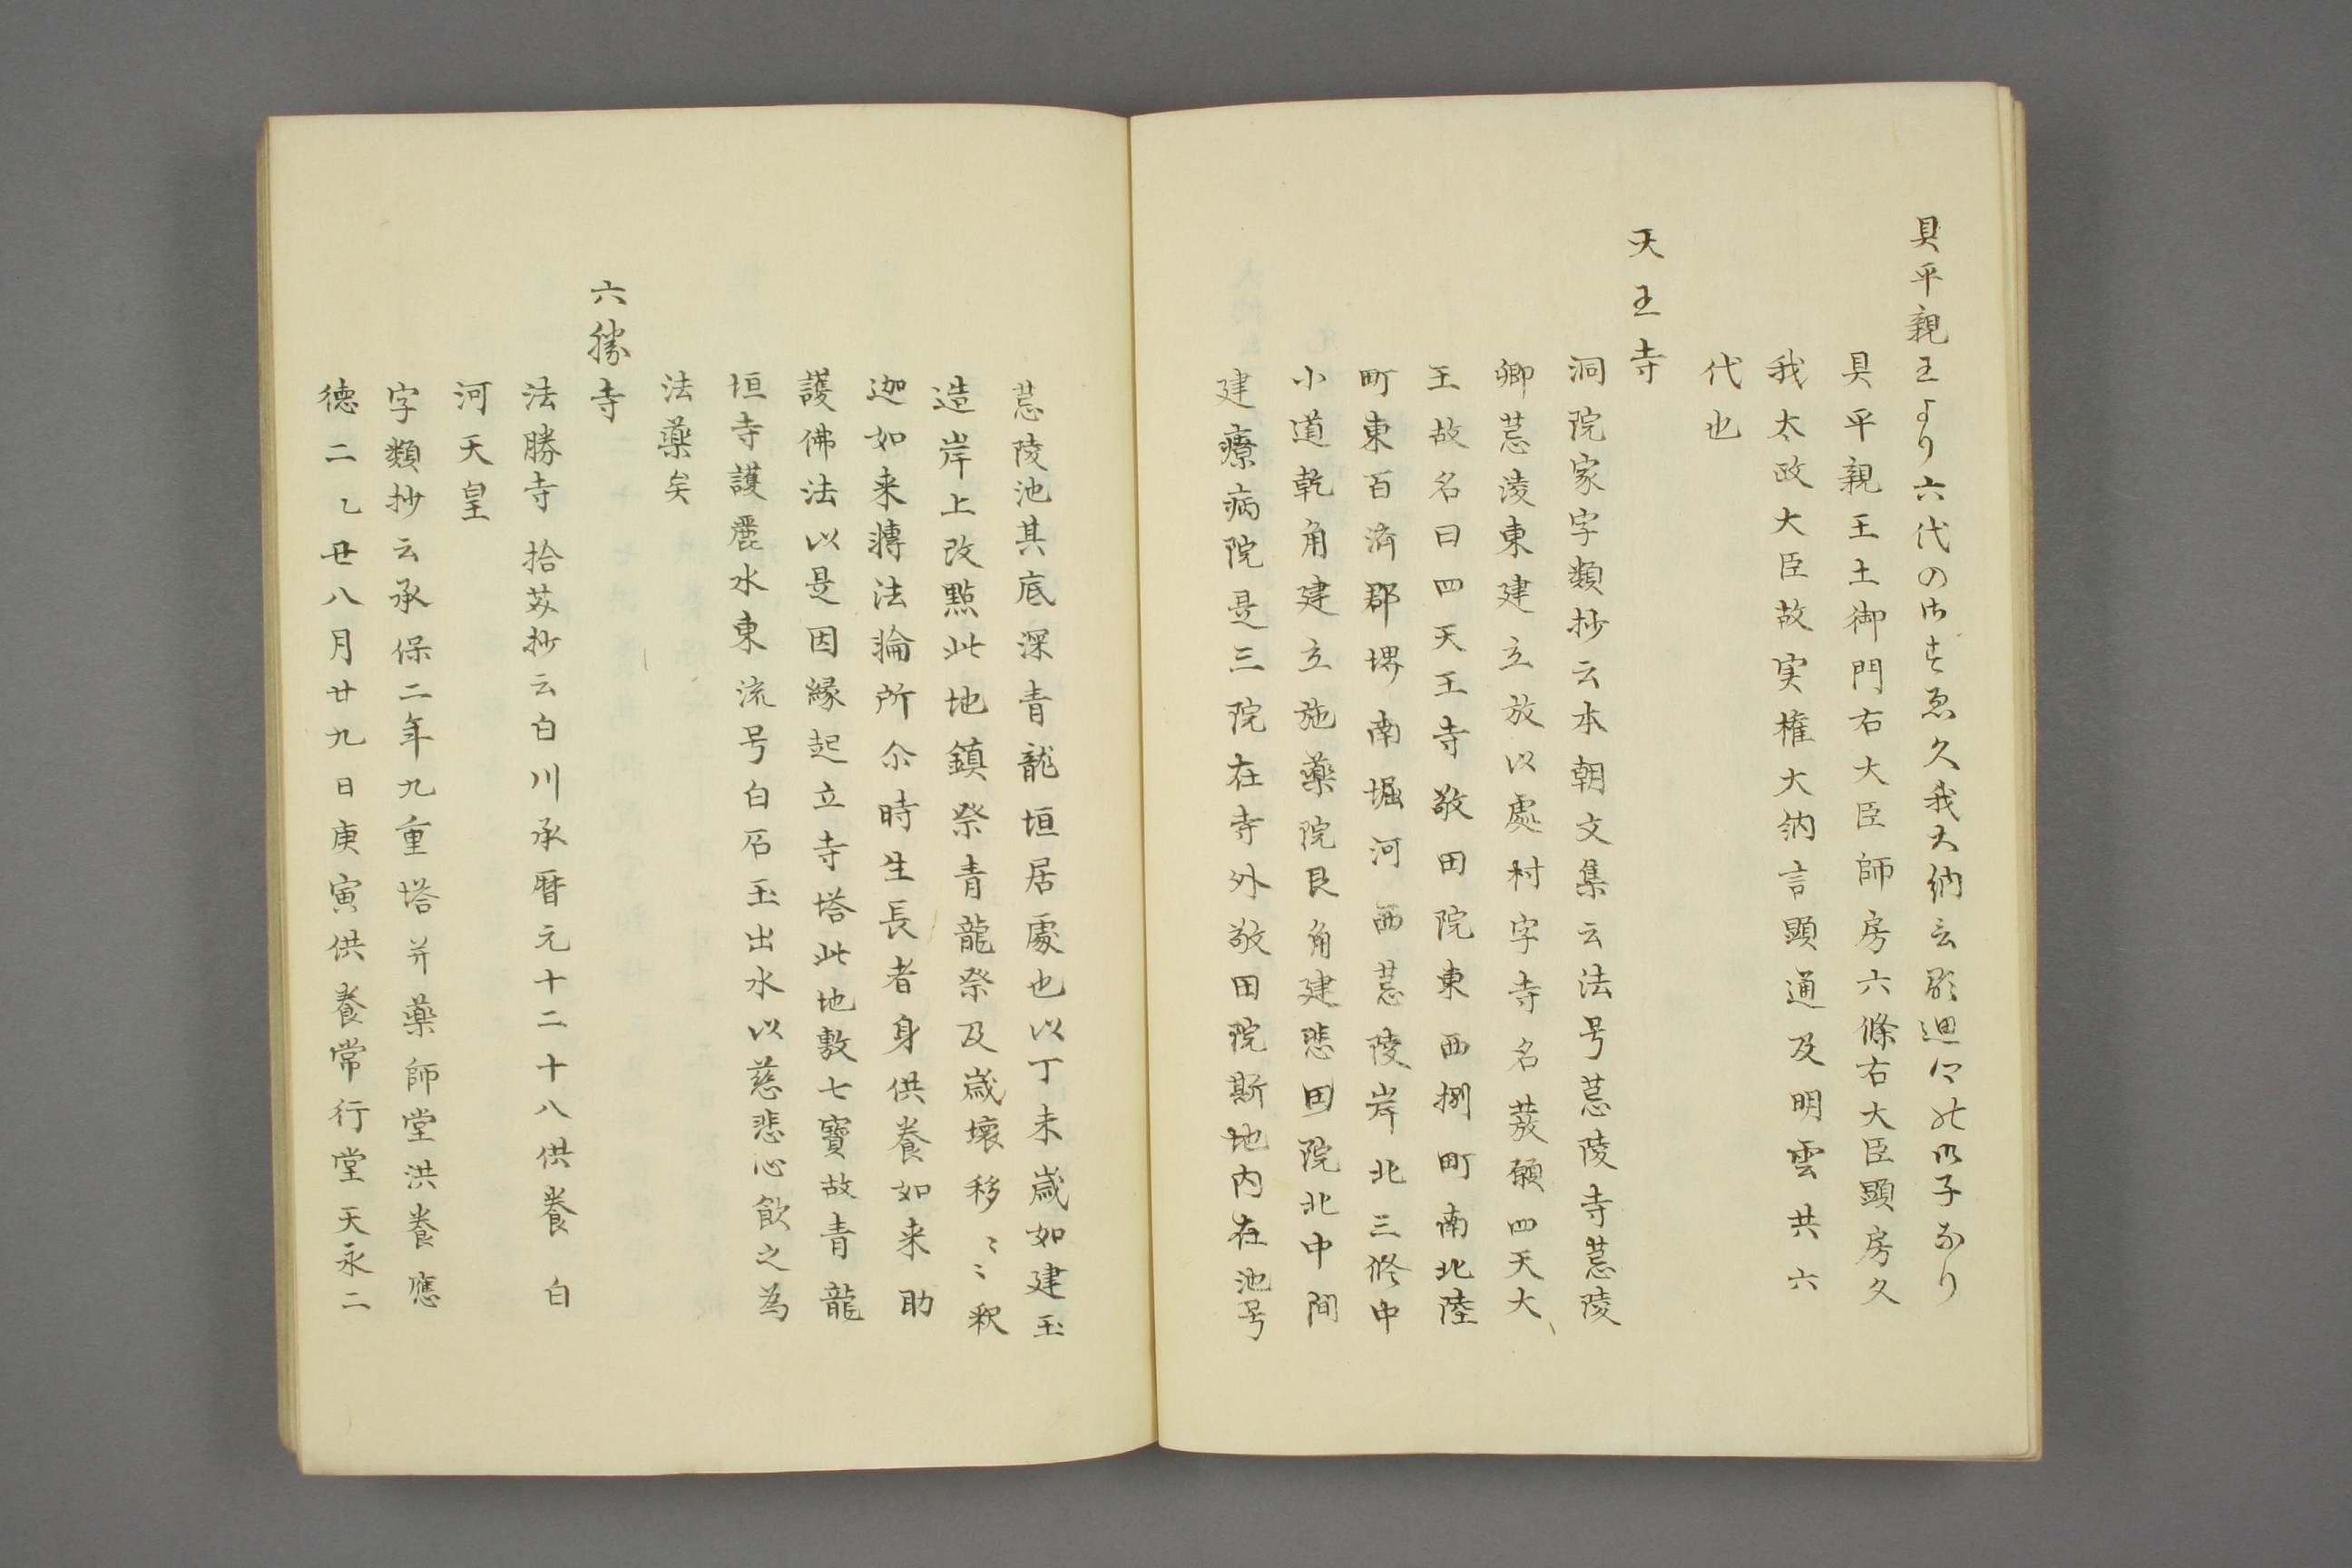 具平親王より六代の御すゑ久我大納言顕通の御子なり
具平親王土御門右大臣師房六條右大臣顕房久
我太政大臣故実権大納言顕通及明雲共六
代也
天王寺
洞院家字類抄云本朝文集云法号荒陵寺荒陵
郷荒陵東建立故以處村字寺名葼願四天大
王故名曰四天王寺敬田院東西捌町南北陸
町東百済郡堺南堀河西荒陵岸北三條中
小道乾角建立施薬院艮角建悲田院北中間
建療病院是三院在寺外敬田院斯地内在池号
荒陵池其底深青龍垣居處也以丁未歳如建玉
造岸上改點此地鎮祭青龍祭及歳壊移〻〻釈
迦如来轉法輪所尒時生長者身供養如来助
護佛法以是因縁起立寺塔此地敷七寶故青龍
垣寺護麗水東流号白石玉出水以慈悲心飲之為
法薬矣
六勝寺
法勝寺 拾芥抄云白川承暦元十二十八供養 白
河天皇
字類抄云承保二年九重塔并薬師堂洪養應
徳二乙丑八月廿九日庚寅供養常行堂天永二